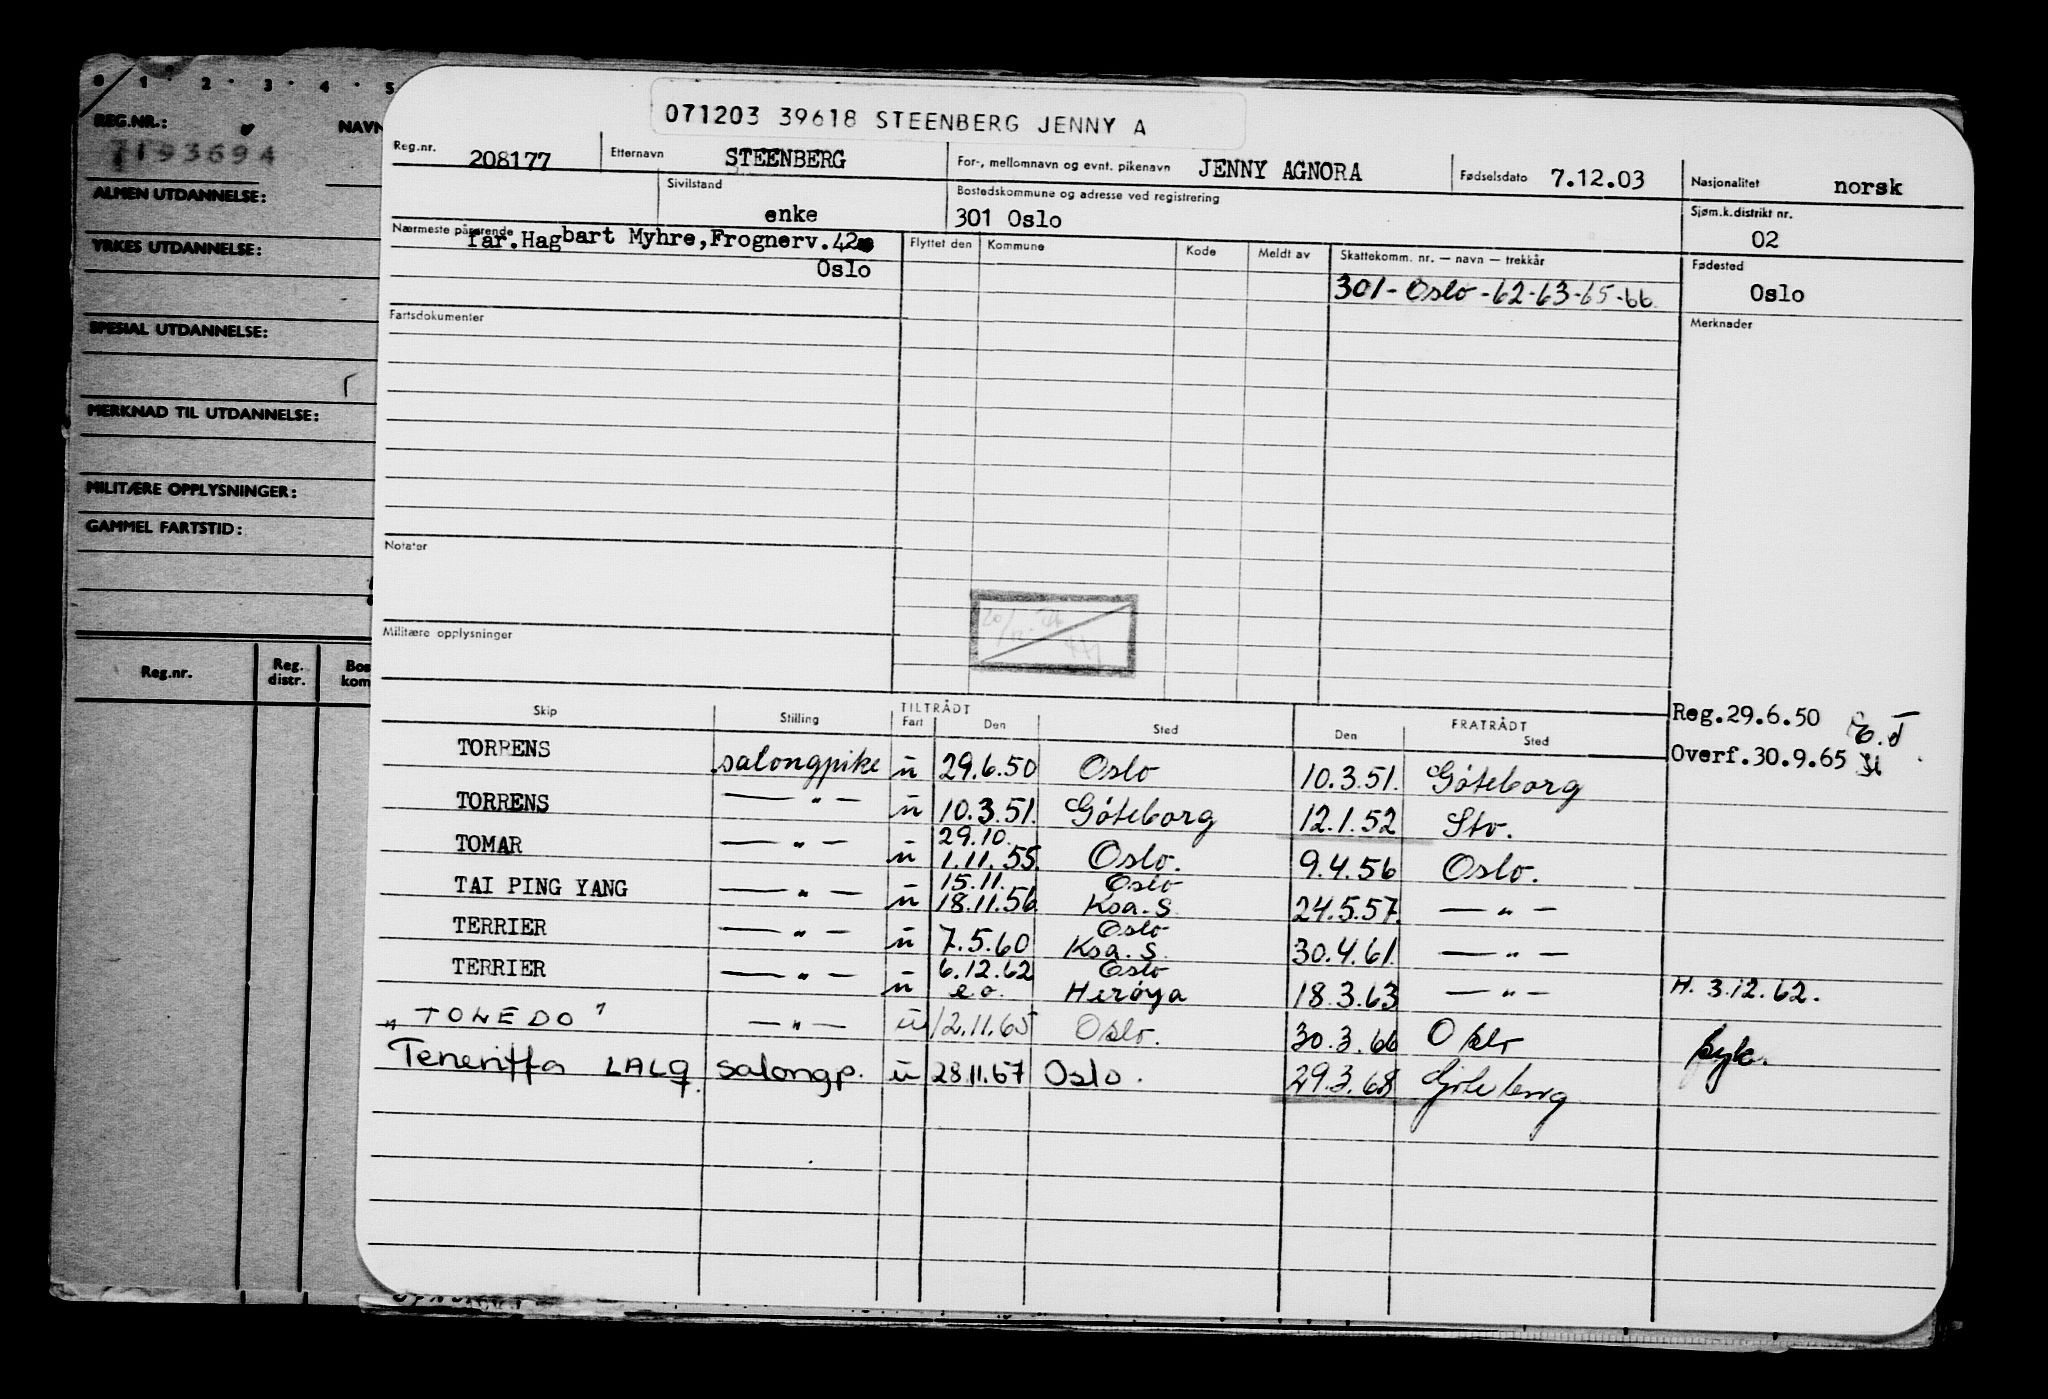 0 1 2 3 4 5
REG.NR.: NAVN
7193694
ALMEN UTDANNELSE:
YRKES UTDANNELSE:
SPESIAL UTDANNELSE:
MERKNAD TIL UTDANNELSE:
MILITÆRE OPPLYSNINGER:
GAMMEL FARTSTID:
Reg.nr. Reg. distr. Bos kom
071203 39618 STEENBERG JENNY A
Reg.nr. 208177 Etternavn STEENBERG For-, mellomnavn og evnt. pikenavn JENNY AGNORA Fødselsdato 7.12.03 Nasjonalitet norsk
Sivilstand enke Bostedskommune og adresse ved registrering 301 Oslo Sjøm.k.distrikt nr. 02
Nærmeste pårørende far.Hagbart Myhre,Frognerv.42 Flyttet den Kommune Kode Meldt av Skattekomm. nr. — navn — trekkår Fødested
Oslo 301 - Oslo - 62-63-65-66 Oslo
Fartsdokumenter Merknader
Notater
Militære opplysninger
TILTRÅDT FRATRÅDT
Skip Stilling Fart Den Sted Den Sted
Reg.29.6.50
Overf.30.9.65
TORRENS salongpike u 29.6.50 Oslo 10.3.51. Göteborg
TORRENS — " — u 10.3.51. Göteborg 12.1.52 Stv.
29.10.
TOMAR — " — u 1.11.55. Oslo. 9.4.56 Oslo.
15.11. Oslo
TAI PING YANG — " — u 18.11.56 Ksa.S 24.5.57. — " —
Oslo
TERRIER — " — u 7.5.60 Ksa.S. 30.4.61. — " —
6.12.62 Oslo
TERRIER — " — u e.o. Herøya 18.3.63 — " — H. 3.12.62.
"TOLEDO" — " — u 12.11.65 Oslo. 30.3.66 Oslo
Teneriffa LALQ salongp. u 28.11.67 Oslo. 29.3.68 Göteborg